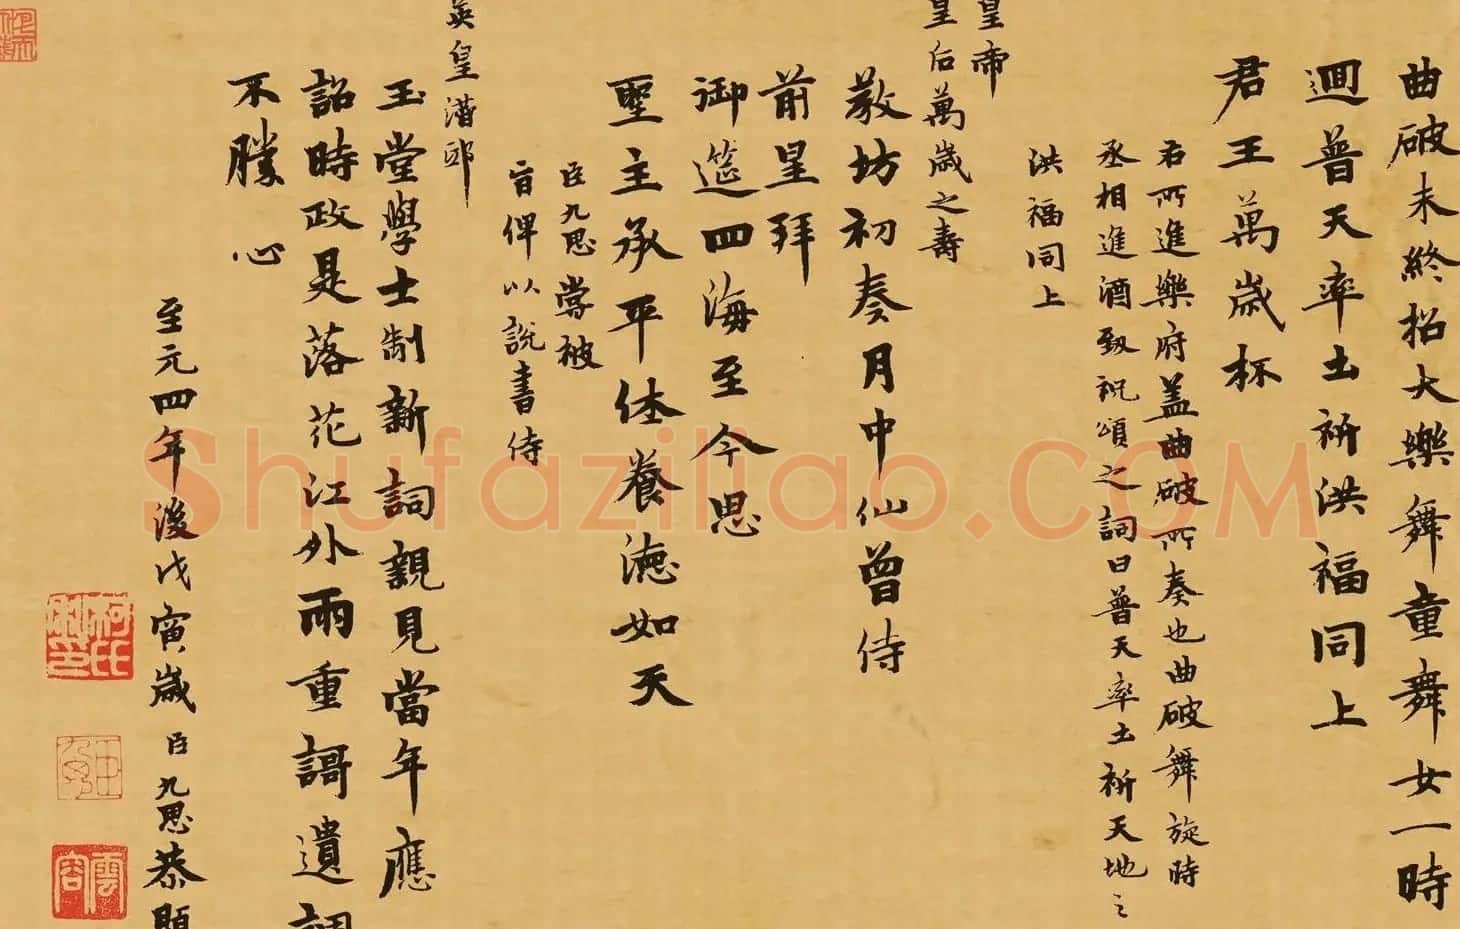 曲破未終招大樂舞童舞女一時
迴普天率土祈洪福同上
君王萬歲杯
右所進樂府蓋曲破所奏也曲破舞旋時
丞相進酒致祝頌之詞曰普天率土祈天地之
洪福同上
皇帝
皇后萬歲之壽
教坊初奏月中仙曾侍
前星拜
御筵四海至今思
聖主承平休養德如天
臣九思嘗被
旨俾以說書侍
英皇潛邸
玉堂學士制新詞親見當年應
詔時政是落花江外雨重謌遺調
不勝心
至元四年後戊寅歲臣九思恭題
柯氏敬仲
雲容
Shufaziliao.COM